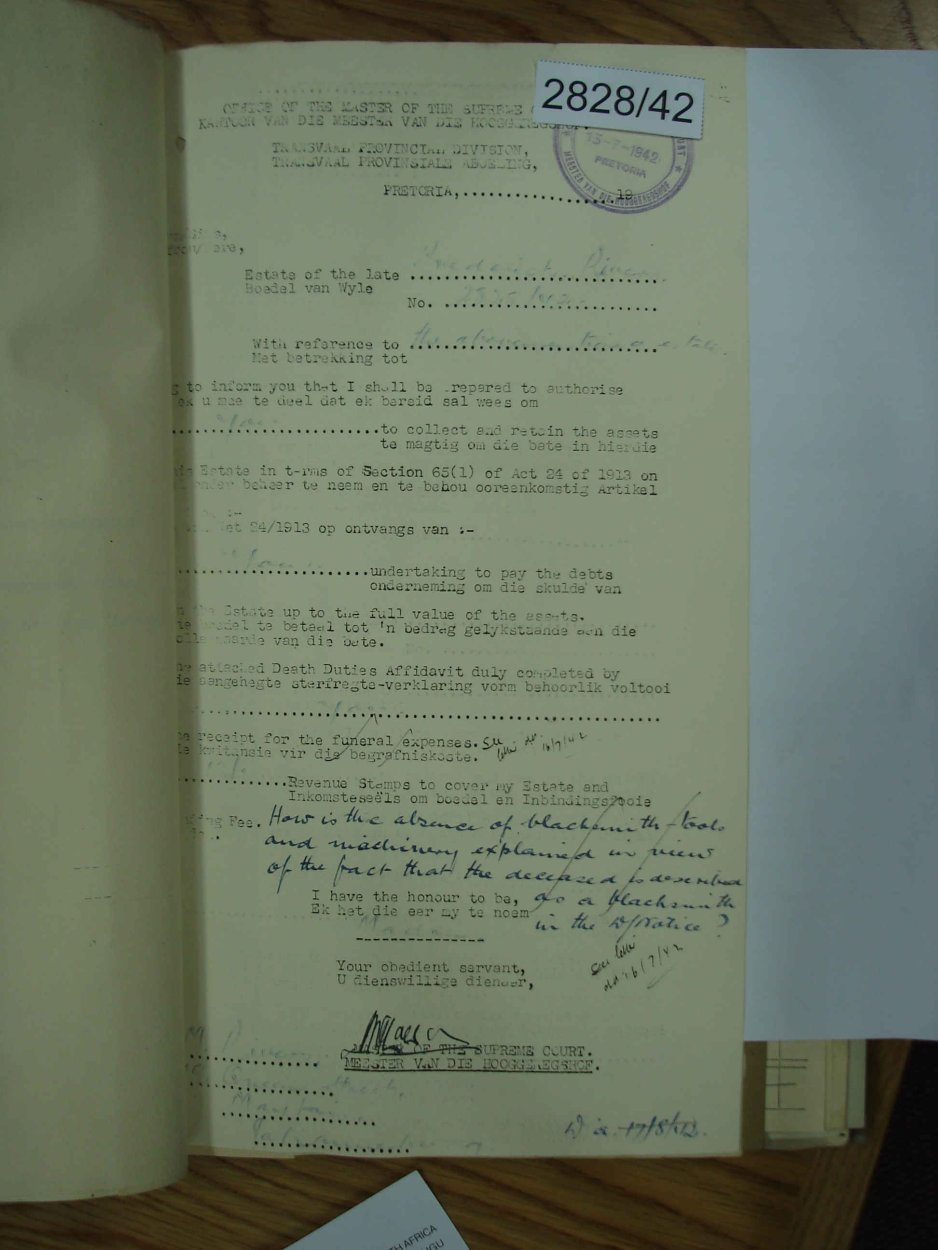 2828/42
OFFICE OF THE MASTER OF THE SUPREME
KANTOOR VAN DIE MEESTER VAN DIE HOOGGEREGSHOF.
13-7-1942
PRETORIA
MEESTER VAN DIE HOOGGEREGSHOF
TRANSVAAL PROVINCIAL DIVISION,
TRANSVAAL PROVINSIALE AFDELING,
PRETORIA,....................19
Estate of the late
Boedel van Wyle
No.
With reference to the above
Met betrekking tot
to inform you that I shall be prepared to authorise
ek u mee te deel dat ek bereid sal wees om
to collect and retain the assets
te magtig om die bate in hierdie
Estate in terms of Section 65(1) of Act 24 of 1913 on
onder beheer te neem en te behou ooreenkomstig Artikel
:-
24/1913 op ontvangs van :-
undertaking to pay the debts
onderneming om die skulde van
the Estate up to the full value of the assets.
boedel te betaal tot 'n bedrag gelykstaande aan die
waarde van die bate.
attached Death Duties Affidavit duly completed by
aangehegte sterfregte-verklaring vorm behoorlik voltooi
receipt for the funeral expenses. See
kwitansie vir die begrafniskoste. 16/7/42
Revenue Stamps to cover my Estate and
Inkomsteseëls om boedel en Inbindingsfooie
Fee. How is the absence of blacksmith tools
and machinery explained in view
of the fact that the deceased is described
I have the honour to be, as a blacksmith
Ek het die eer my te noem in the D/Notice?
See
dd 16/7/42
Your obedient servant,
U dienswillige dienaar,
MASTER OF THE SUPREME COURT.
MEESTER VAN DIE HOOGGEREGSHOF.
Street,
AFRICA